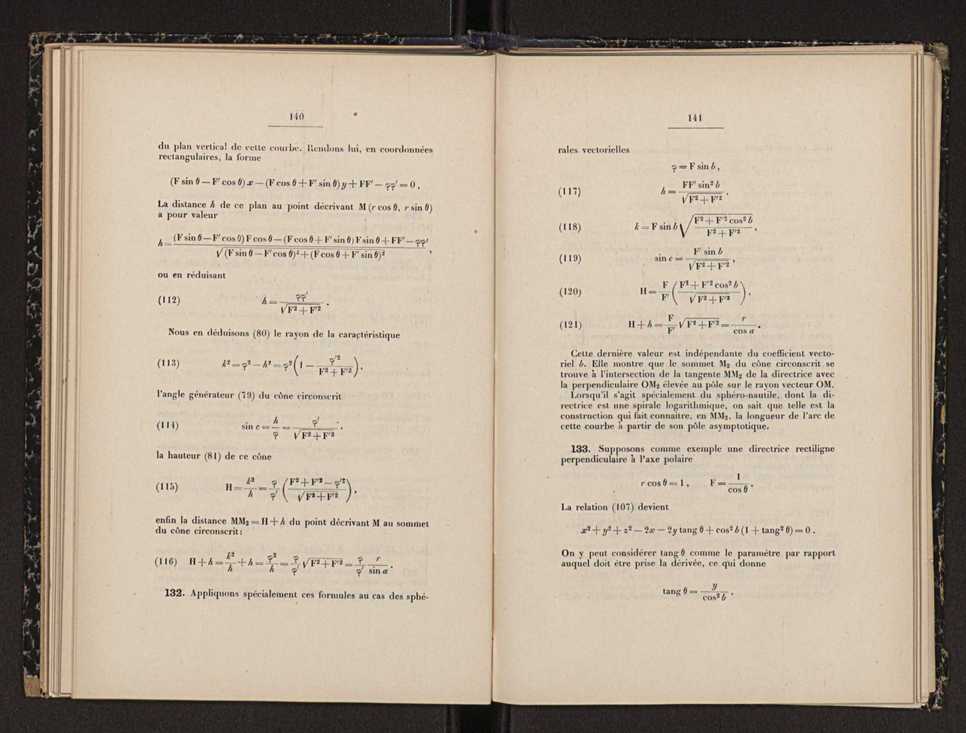 140
du plan vertical de cette courbe. Rendons lui, en coordonnées
rectangulaires, la forme
(F sin θ — F′ cos θ) x — (F cos θ + F′ sin θ) y + FF′ — φφ′ = 0 ,
La distance h de ce plan au point décrivant M (r cos θ, r sin θ)
a pour valeur
h = (F sin θ — F′ cos θ) F cos θ — (F cos θ + F′ sin θ) F sin θ + FF′ — φφ′ / √(F sin θ — F′ cos θ)² + (F cos θ + F′ sin θ)² ,
ou en réduisant
(112) h = φφ′ / √F² + F′² .
Nous en déduisons (80) le rayon de la caractéristique
(113) k² = φ² — h² = φ² (1 — φ′² / F² + F′²) ,
l'angle générateur (79) du cône circonscrit
(114) sin c = h / φ = φ′ / √F² + F′² .
la hauteur (81) de ce cône
(115) H = k² / h = φ / φ′ (F² + F′² — φ′² / √F² + F′²) ,
enfin la distance MM₂ = H + h du point décrivant M au sommet
du cône circonscrit :
(116) H + h = k² / h + h = φ² / h = φ / φ′ √F² + F′² = φ / φ′ r / sin α .
132. Appliquons spécialement ces formules au cas des sphé-
141
rales vectorielles
φ = F sin b ,
(117) h = FF′ sin² b / √F² + F′² ,
(118) k = F sin b √F² + F′² cos² b / F² + F′² ,
(119) sin c = F′ sin b / √F² + F′² ,
(120) H = F / F′ (F² + F′² cos² b / √F² + F′²) ,
(121) H + h = F / F′ √F² + F′² = r / cos α .
Cette dernière valeur est indépendante du coefficient vecto-
riel b. Elle montre que le sommet M₂ du cône circonscrit se
trouve à l'intersection de la tangente MM₂ de la directrice avec
la perpendiculaire OM₂ élevée au pôle sur le rayon vecteur OM.
Lorsqu'il s'agit spécialement du sphéro-nautile, dont la di-
rectrice est une spirale logarithmique, on sait que telle est la
construction qui fait connaître, en MM₂, la longueur de l'arc de
cette courbe à partir de son pôle asymptotique.
133. Supposons comme exemple une directrice rectiligne
perpendiculaire à l'axe polaire
r cos θ = 1 , F = 1 / cos θ .
La relation (107) devient
x² + y² + z² — 2x — 2y tang θ + cos² b (1 + tang² θ) = 0 .
On y peut considérer tang θ comme le paramètre par rapport
auquel doit être prise la dérivée, ce qui donne
tang θ = y / cos² b .